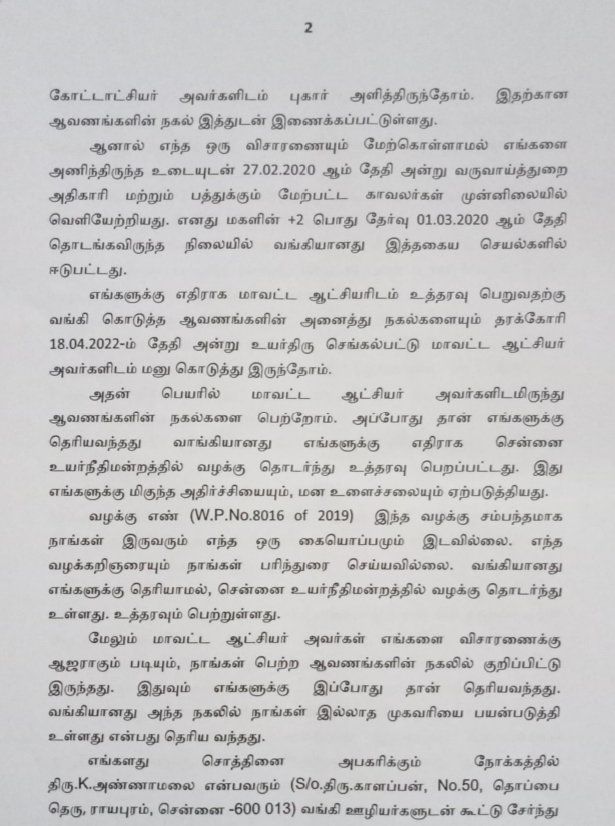 2
கோட்டாட்சியர் அவர்களிடம் புகார் அளித்திருந்தோம். இதற்கான
ஆவணங்களின் நகல் இத்துடன் இணைக்கப்பட்டுள்ளது.
ஆனால் எந்த ஒரு விசாரணையும் மேற்கொள்ளாமல் எங்களை
அணிந்திருந்த உடையுடன் 27.02.2020 ஆம் தேதி அன்று வருவாய்த்துறை
அதிகாரி மற்றும் பத்துக்கும் மேற்பட்ட காவலர்கள் முன்னிலையில்
வெளியேற்றியது. எனது மகளின் +2 பொது தேர்வு 01.03.2020 ஆம் தேதி
தொடங்கவிருந்த நிலையில் வங்கியானது இத்தகைய செயல்களில்
ஈடுபட்டது.
எங்களுக்கு எதிராக மாவட்ட ஆட்சியரிடம் உத்தரவு பெறுவதற்கு
வங்கி கொடுத்த ஆவணங்களின் அனைத்து நகல்களையும் தரக்கோரி
18.04.2022-ம் தேதி அன்று உயர்திரு செங்கல்பட்டு மாவட்ட ஆட்சியர்
அவர்களிடம் மனு கொடுத்து இருந்தோம்.
அதன் பெயரில் மாவட்ட ஆட்சியர் அவர்களிடமிருந்து
ஆவணங்களின் நகல்களை பெற்றோம். அப்போது தான் எங்களுக்கு
தெரியவந்தது வாங்கியானது எங்களுக்கு எதிராக சென்னை
உயர்நீதிமன்றத்தில் வழக்கு தொடர்ந்து உத்தரவு பெறப்பட்டது. இது
எங்களுக்கு மிகுந்த அதிர்ச்சியையும், மன உளைச்சலையும் ஏற்படுத்தியது.
வழக்கு எண் (W.P.No.8016 of 2019) இந்த வழக்கு சம்பந்தமாக
நாங்கள் இருவரும் எந்த ஒரு கையொப்பமும் இடவில்லை. எந்த
வழக்கறிஞரையும் நாங்கள் பரிந்துரை செய்யவில்லை. வங்கியானது
எங்களுக்கு தெரியாமல், சென்னை உயர்நீதிமன்றத்தில் வழக்கு தொடர்ந்து
உள்ளது. உத்தரவும் பெற்றுள்ளது.
மேலும் மாவட்ட ஆட்சியர் அவர்கள் எங்களை விசாரணைக்கு
ஆஜராகும் படியும், நாங்கள் பெற்ற ஆவணங்களின் நகலில் குறிப்பிட்டு
இருந்தது. இதுவும் எங்களுக்கு இப்போது தான் தெரியவந்தது.
வங்கியானது அந்த நகலில் நாங்கள் இல்லாத முகவரியை பயன்படுத்தி
உள்ளது என்பது தெரிய வந்தது.
எங்களது சொத்தினை அபகரிக்கும் நோக்கத்தில்
திரு.K.அண்ணாமலை என்பவரும் (S/o.திரு.காளப்பன், No.50, தொப்பை
தெரு, ராயபுரம், சென்னை -600 013) வங்கி ஊழியர்களுடன் கூட்டு சேர்ந்து